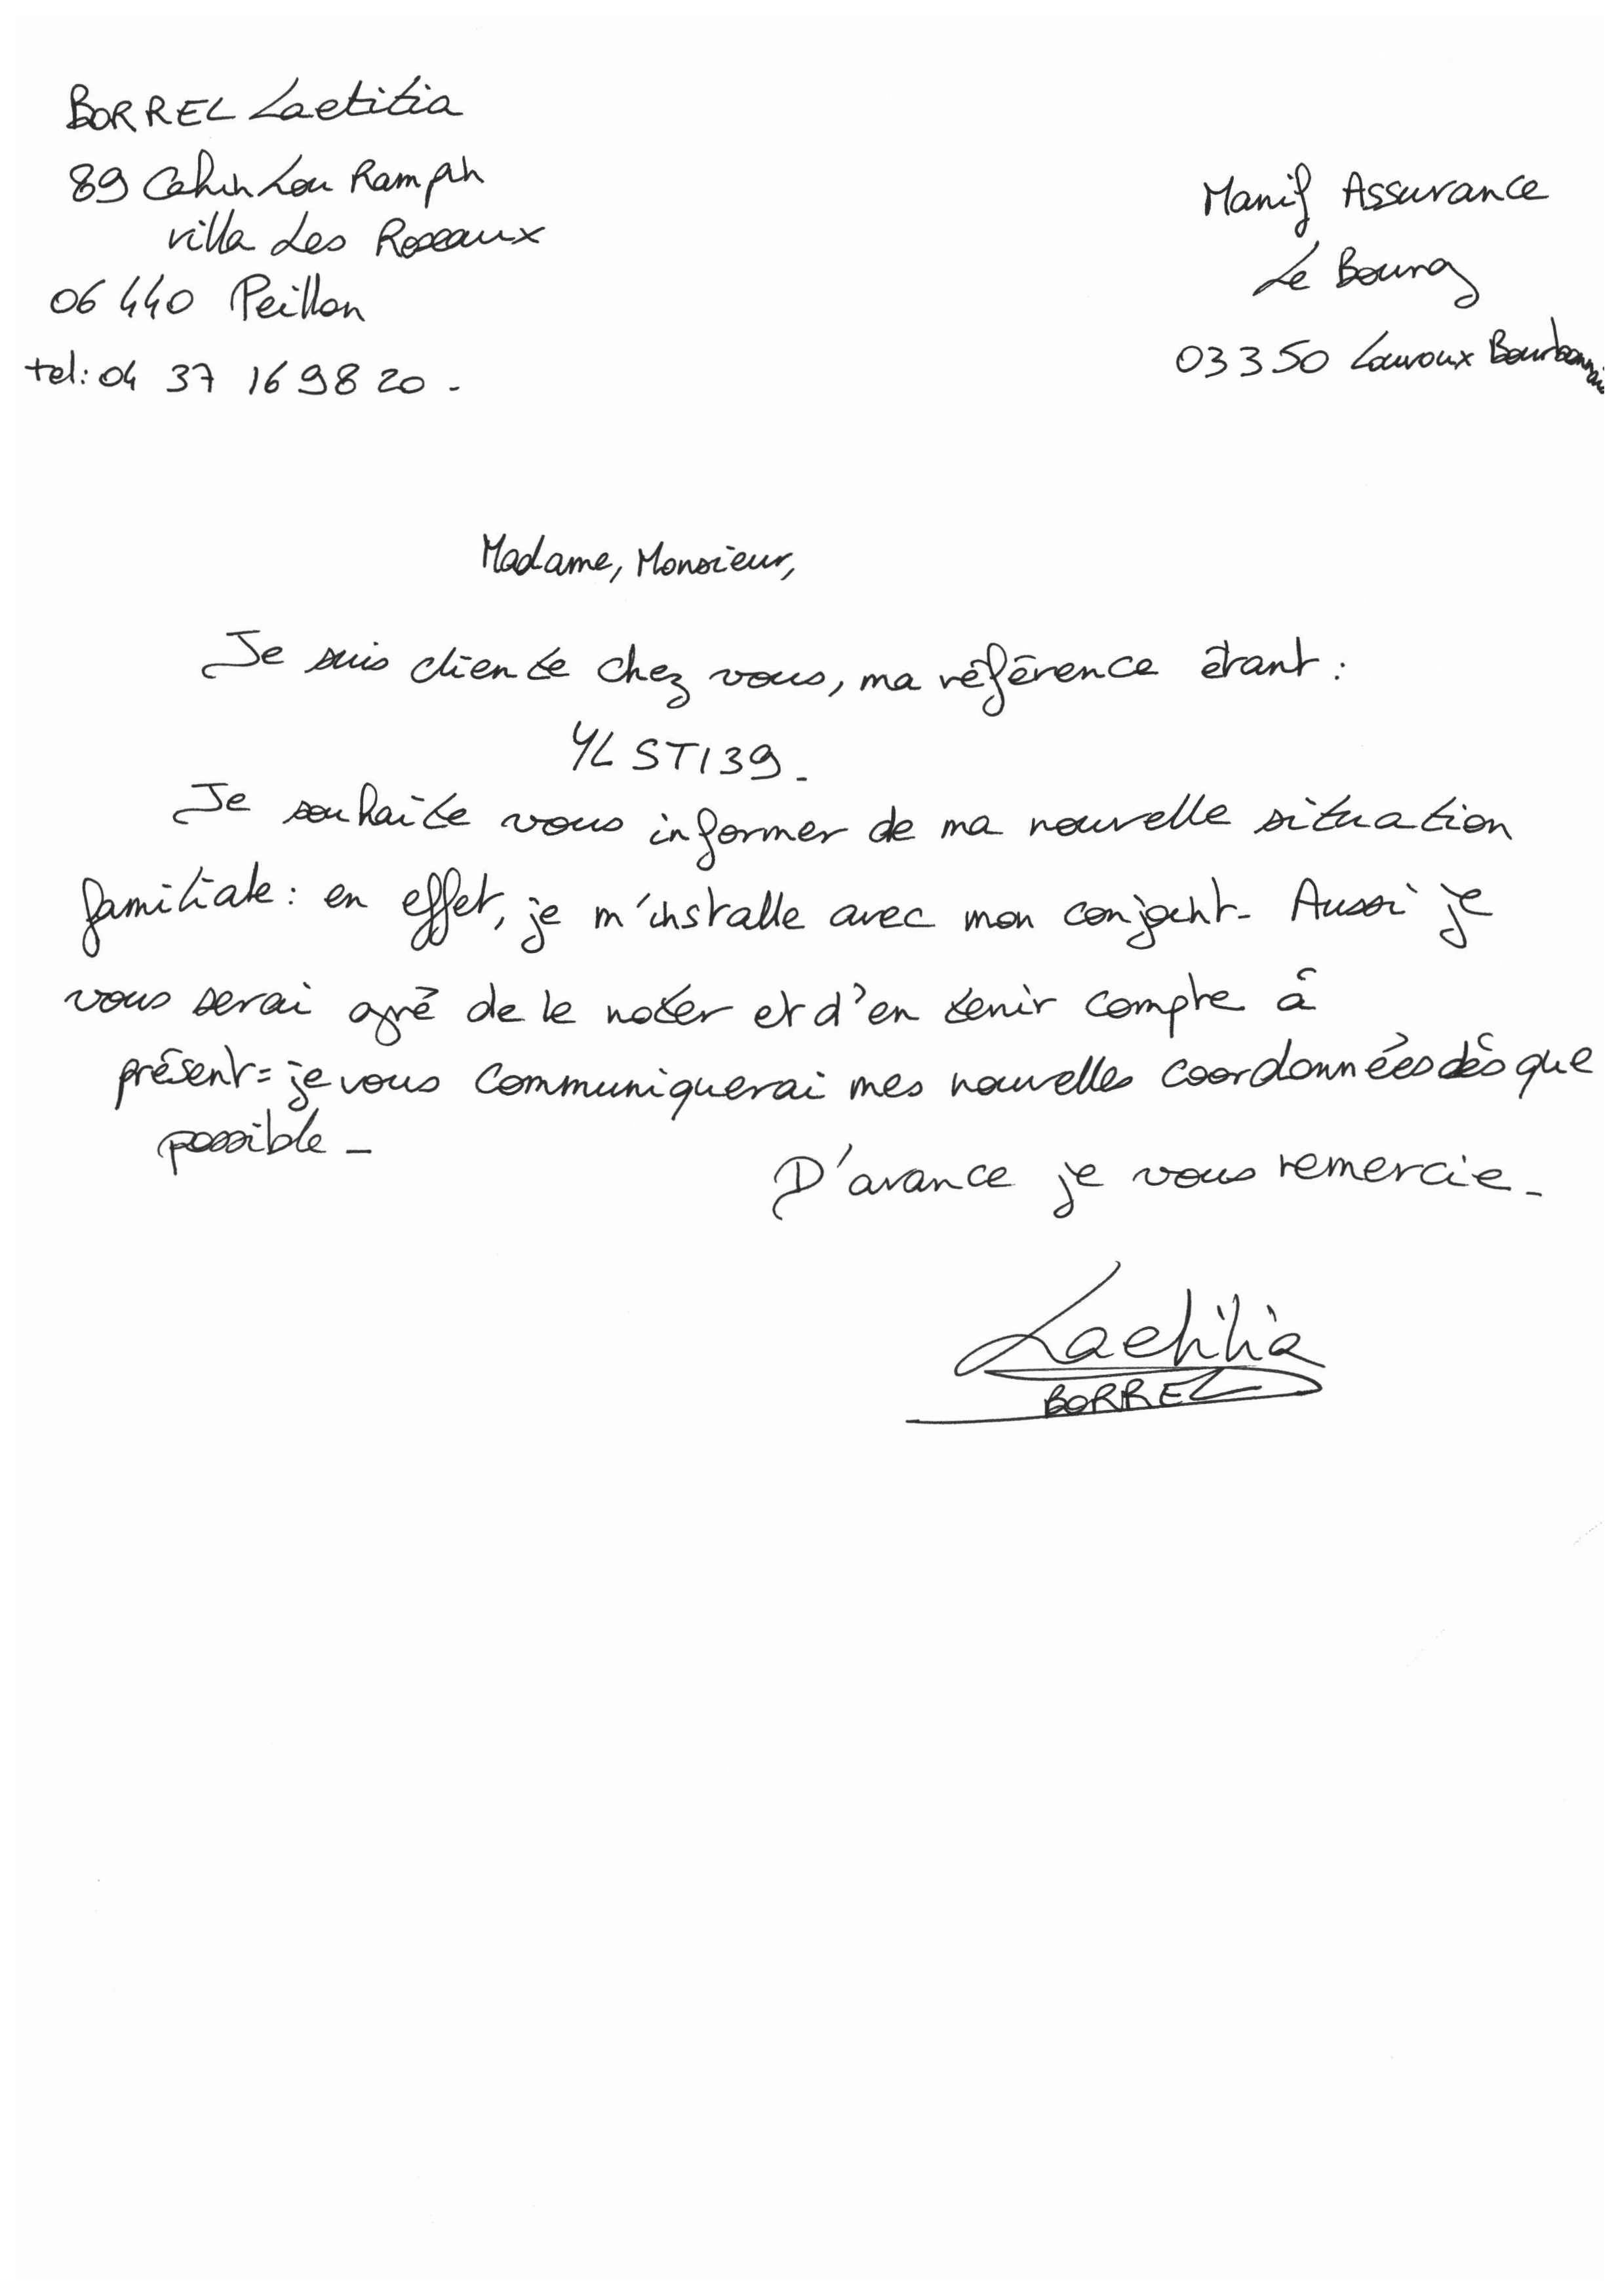 BORREL Laetitia
89 Lou
villa Les Roseaux
06 440 Peillon
tel: 04 37 16 98 20.
Manif Assurance
Le Bourg
03350 Louroux Bourbonnais
Madame, Monsieur,
Je suis cliente chez vous, ma référence étant :
YLSTI39.
Je souhaite vous informer de ma nouvelle situation
familiale : en effet, je m'installe avec mon conjoint. Aussi je
vous serai gré de le noter et d'en tenir compte à
présent = je vous communiquerai mes nouvelles coordonnées dès que
possible -
D'avance je vous remercie -
Laetitia
BORREL